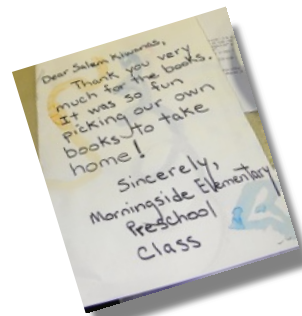 Dear Salem Kiwanas,
Thank you very
much for the books.
It was so fun
picking our own
books to take
home!
Sincerely,
Morningside Elementary
Preschool
Class